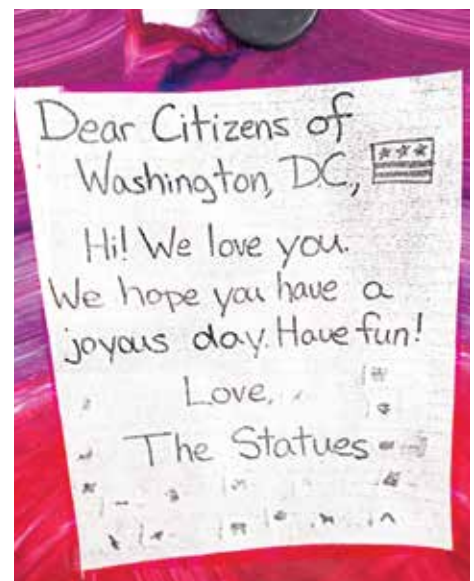 Dear Citizens of
Washington, D.C.,
Hi! We love you.
We hope you have a
joyous day. Have fun!
Love,
The Statues